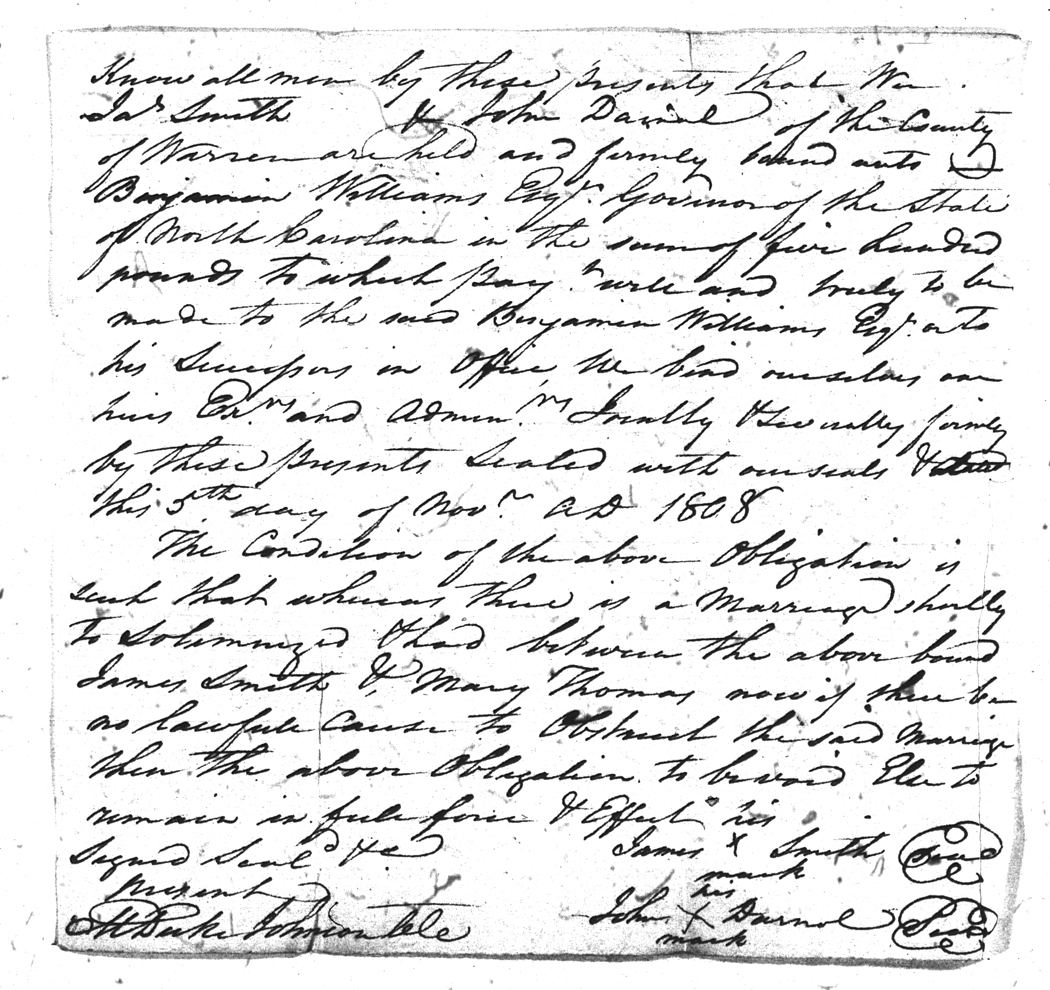 Know all men by these presents that We
Jas Smith & John Darnol of the County
of Warren are held and firmly bound unto
Benjamin Williams Esqr. Govinor of the State
of North Carolina in the sum of five hundred
pounds to which paymt well and truly to be
made to the said Benjamin Williams Esqr or to
his Successors in Office We bind ourselves our
heirs Exrs and Adminrs Jointly & Severally firmly
by these presents Sealed with our seals & dated
this 5th day of Novr. AD 1808
The Condition of the above Obligation is
such that whereas there is a Marriage shortly
to Solemnized & had between the above bound
James Smith & Mary Thomas now if there be
no lawfull Cause to Obstruct the said Marriage
then the above Obligation to be void Else to
remain in full force & Effect
Signed Seald &c
present
his
James X Smith Seal
mark
his
John X Darnol Seal
mark
M Duke Johnson